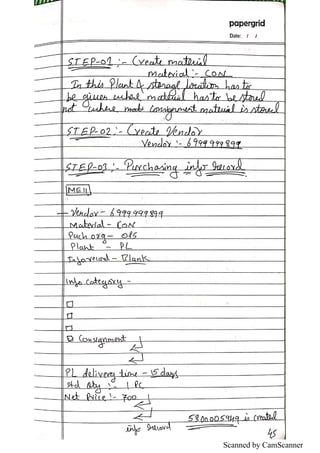 papergrid
Date: / /
STEP-01 :- Create material
material :- CON
In this Plant & storage location has to
be given where material has to be stored
not where mode consignment material is stored
STEP-02 :- Create Vendor
Vendor :- 6999999899
STEP-03 :- Purchasing info Record
ME11
Vendor - 6999999899
Material - CON
Puch org - OPS
Plant - PL
Inforecord - Blank
Info category -
Consignment
PL delivery time - 15 days
std Qty :- 1 PC
Net Price :- 700
info record 5300005949 is created
45
Scanned by CamScanner